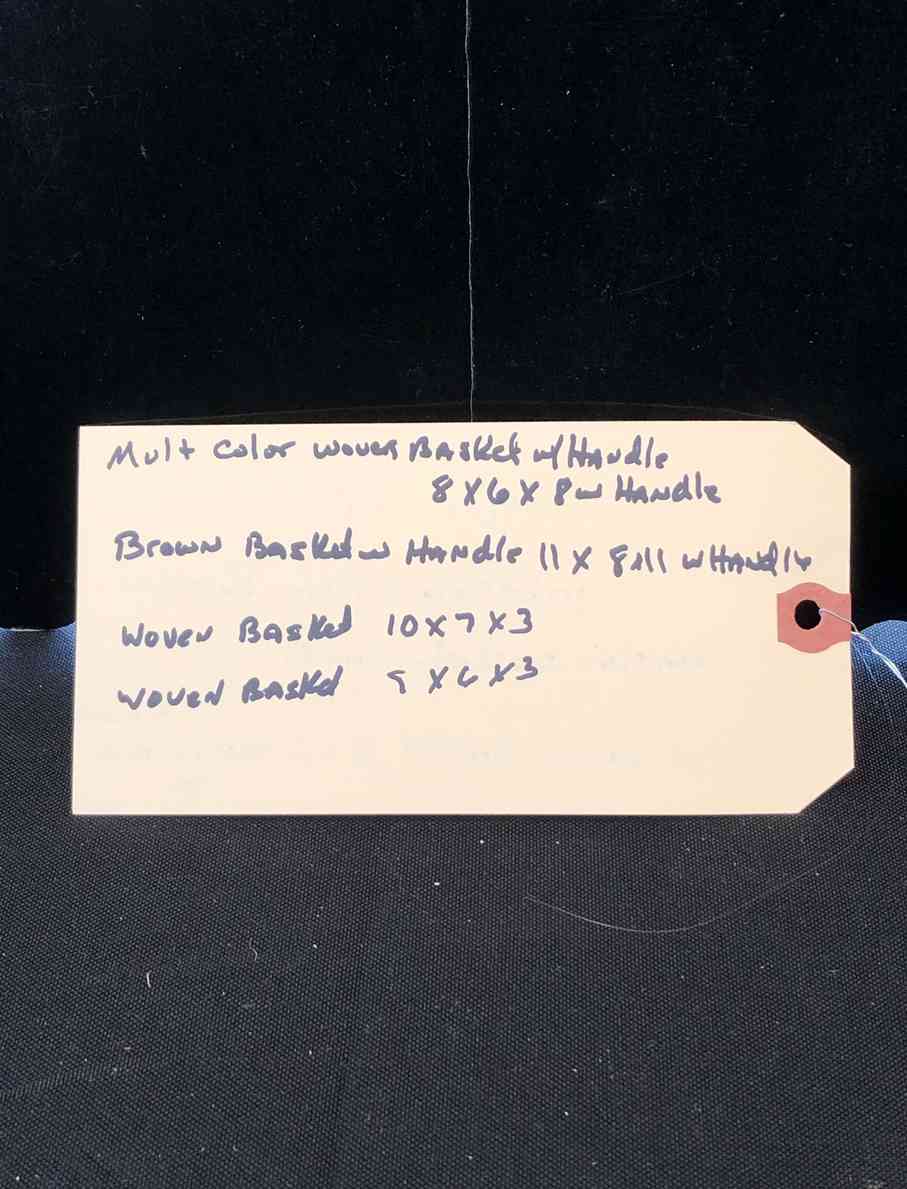 Mult Color woven Basket w/Handle
8 X 6 X 8 w Handle
Brown Basket w Handle 11 X 8 x 11 w Handle
Woven Basket 10 X 7 X 3
Woven Basket 9 X 6 X 3